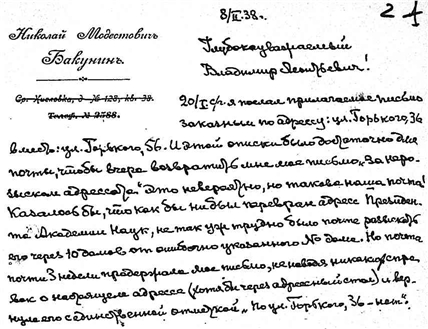 8/II.38г.
2
Николай Модестовичъ
Бакунинъ.
Глубокоуважаемый
Владимир Леонтьевич!
20/I с/г я послал прилагаемое письмо
заказным по адресу: ул. Горького, 36
вместо: ул. Горького, 56. И этой описки было достаточно для
почты, чтобы вчера возвратить мне мое письмо „за нерозыском адрессата“. Это невероятно, но такова наша почта!
Казалось бы, что как бы ни был перевран адрес Президента Академии Наук, не так уж трудно было почте разыскать
его через 10 домов от ошибочно указанного № дома. Но почта
почти 3 недели продержала мое письмо, не наводя никаких справок о надлежащем адресе (хотя бы через адресный стол) и вернула его с единственной отметкой „По ул. Горького, 36 – нет“.